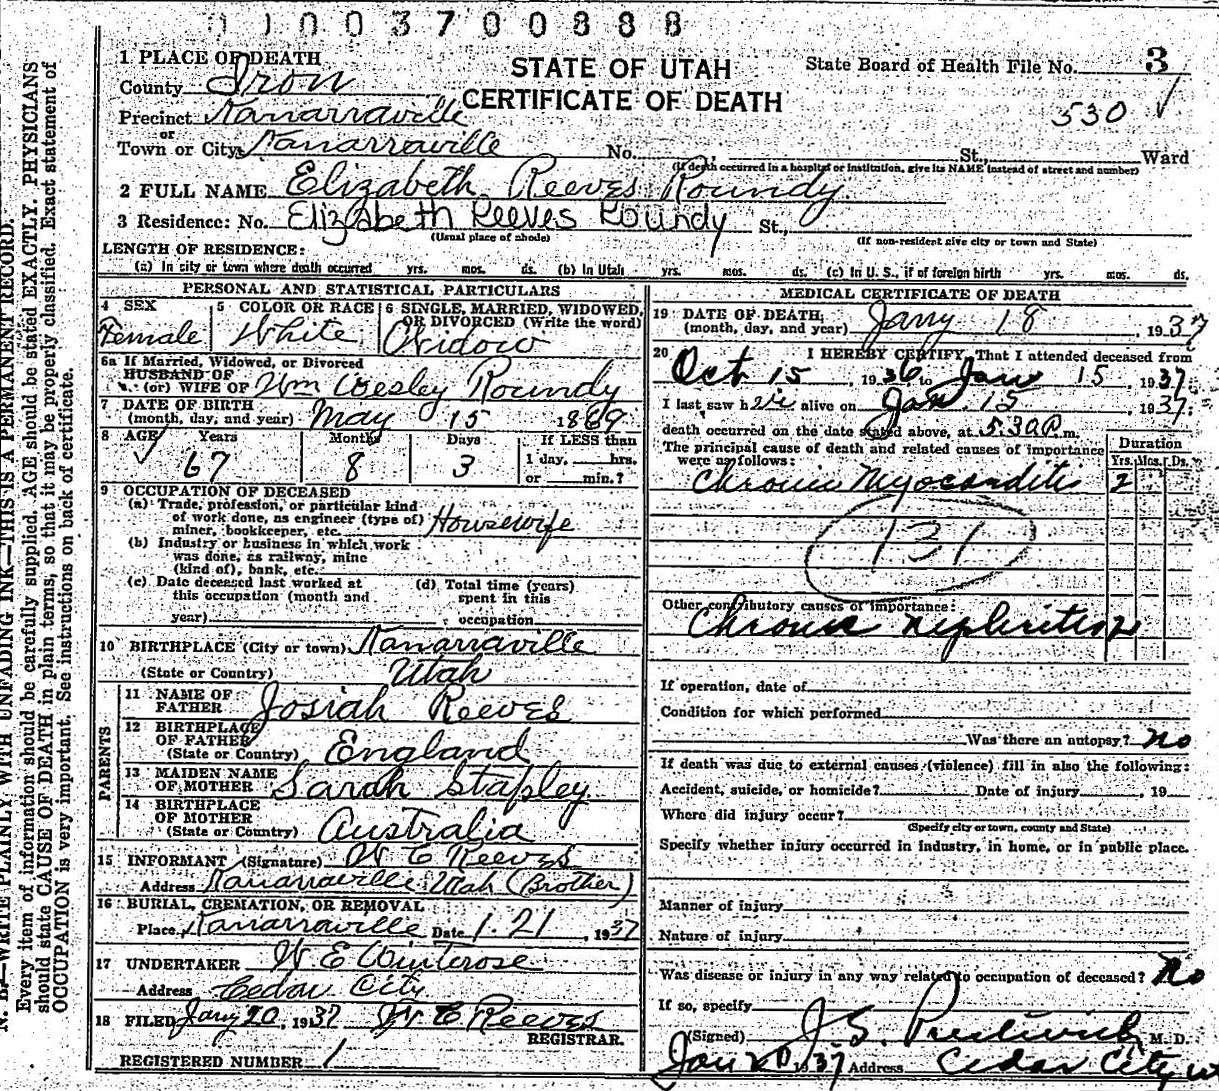 0 1 0 0 3 7 0 0 8 8 8
STATE OF UTAH
CERTIFICATE OF DEATH
State Board of Health File No. 3
530 ✓
1 PLACE OF DEATH
County Iron
Precinct Kanarraville
or
Town or City Kanarraville No. St., Ward
(If death occurred in a hospital or institution, give its NAME instead of street and number)
2 FULL NAME Elizabeth Reeves Roundy
3 Residence: No. Elizabeth Reeves Roundy St.,
(Usual place of abode) (If non-resident give city or town and State)
LENGTH OF RESIDENCE:
(a) In city or town where death occurred yrs. mos. ds. (b) In Utah yrs. mos. ds. (c) In U. S., if of foreign birth yrs. mos. ds.
PERSONAL AND STATISTICAL PARTICULARS
4 SEX Female
5 COLOR OR RACE White
6 SINGLE, MARRIED, WIDOWED, OR DIVORCED (Write the word) Widow
6a If Married, Widowed, or Divorced
HUSBAND OF
(or) WIFE OF Wm Wesley Roundy
7 DATE OF BIRTH
(month, day, and year) May 15 1869
8 AGE ✓ Years 67 Months 8 Days 3 If LESS than
1 day, hrs.
or min.?
9 OCCUPATION OF DECEASED
(a) Trade, profession, or particular kind
of work done, as engineer (type of)
miner, bookkeeper, etc. Housewife
(b) Industry or business in which work
was done, as railway, mine
(kind of), bank, etc.
(c) Date deceased last worked at
this occupation (month and
year)
(d) Total time (years)
spent in this
occupation
10 BIRTHPLACE (City or town) Kanarraville
(State or Country) Utah
PARENTS
11 NAME OF
FATHER Josiah Reeves
12 BIRTHPLACE
OF FATHER
(State or Country) England
13 MAIDEN NAME
OF MOTHER Sarah Stapley
14 BIRTHPLACE
OF MOTHER
(State or Country) Australia
15 INFORMANT (Signature) W E Reeves
Address Kanarraville Utah (Brother)
16 BURIAL, CREMATION, OR REMOVAL
Place Kanarraville Date 1-21, 1937
17 UNDERTAKER W E Winterose
Address Cedar City
18 FILED Jany 20, 1937 W E Reeves
REGISTRAR.
REGISTERED NUMBER 1
MEDICAL CERTIFICATE OF DEATH
19 DATE OF DEATH
(month, day, and year) Jany 18, 1937
20 I HEREBY CERTIFY, That I attended deceased from
Oct 15, 1936 to Jan 15, 1937
I last saw her alive on Jan. 15, 1937
death occurred on the date stated above, at 5:30 P. m.
The principal cause of death and related causes of importance
were as follows:
Duration
Yrs. Mos. Ds.
Chronic Myocarditis 2
131
Other contributory causes of importance:
Chronic nephritis 2
If operation, date of
Condition for which performed
Was there an autopsy? No
If death was due to external causes (violence) fill in also the following:
Accident, suicide, or homicide? Date of injury , 19
Where did injury occur?
(Specify city or town, county and State)
Specify whether injury occurred in industry, in home, or in public place.
Manner of injury
Nature of injury
Was disease or injury in any way related to occupation of deceased? No
If so, specify
(Signed) J S. Prestwich M. D.
Jan 20 1937 Address Cedar City ut
N. B.—WRITE PLAINLY WITH UNFADING INK—THIS IS A PERMANENT RECORD.
Every item of information should be carefully supplied. AGE should be stated EXACTLY. PHYSICIANS
should state CAUSE OF DEATH in plain terms, so that it may be properly classified. Exact statement of
OCCUPATION is very important. See instructions on back of certificate.